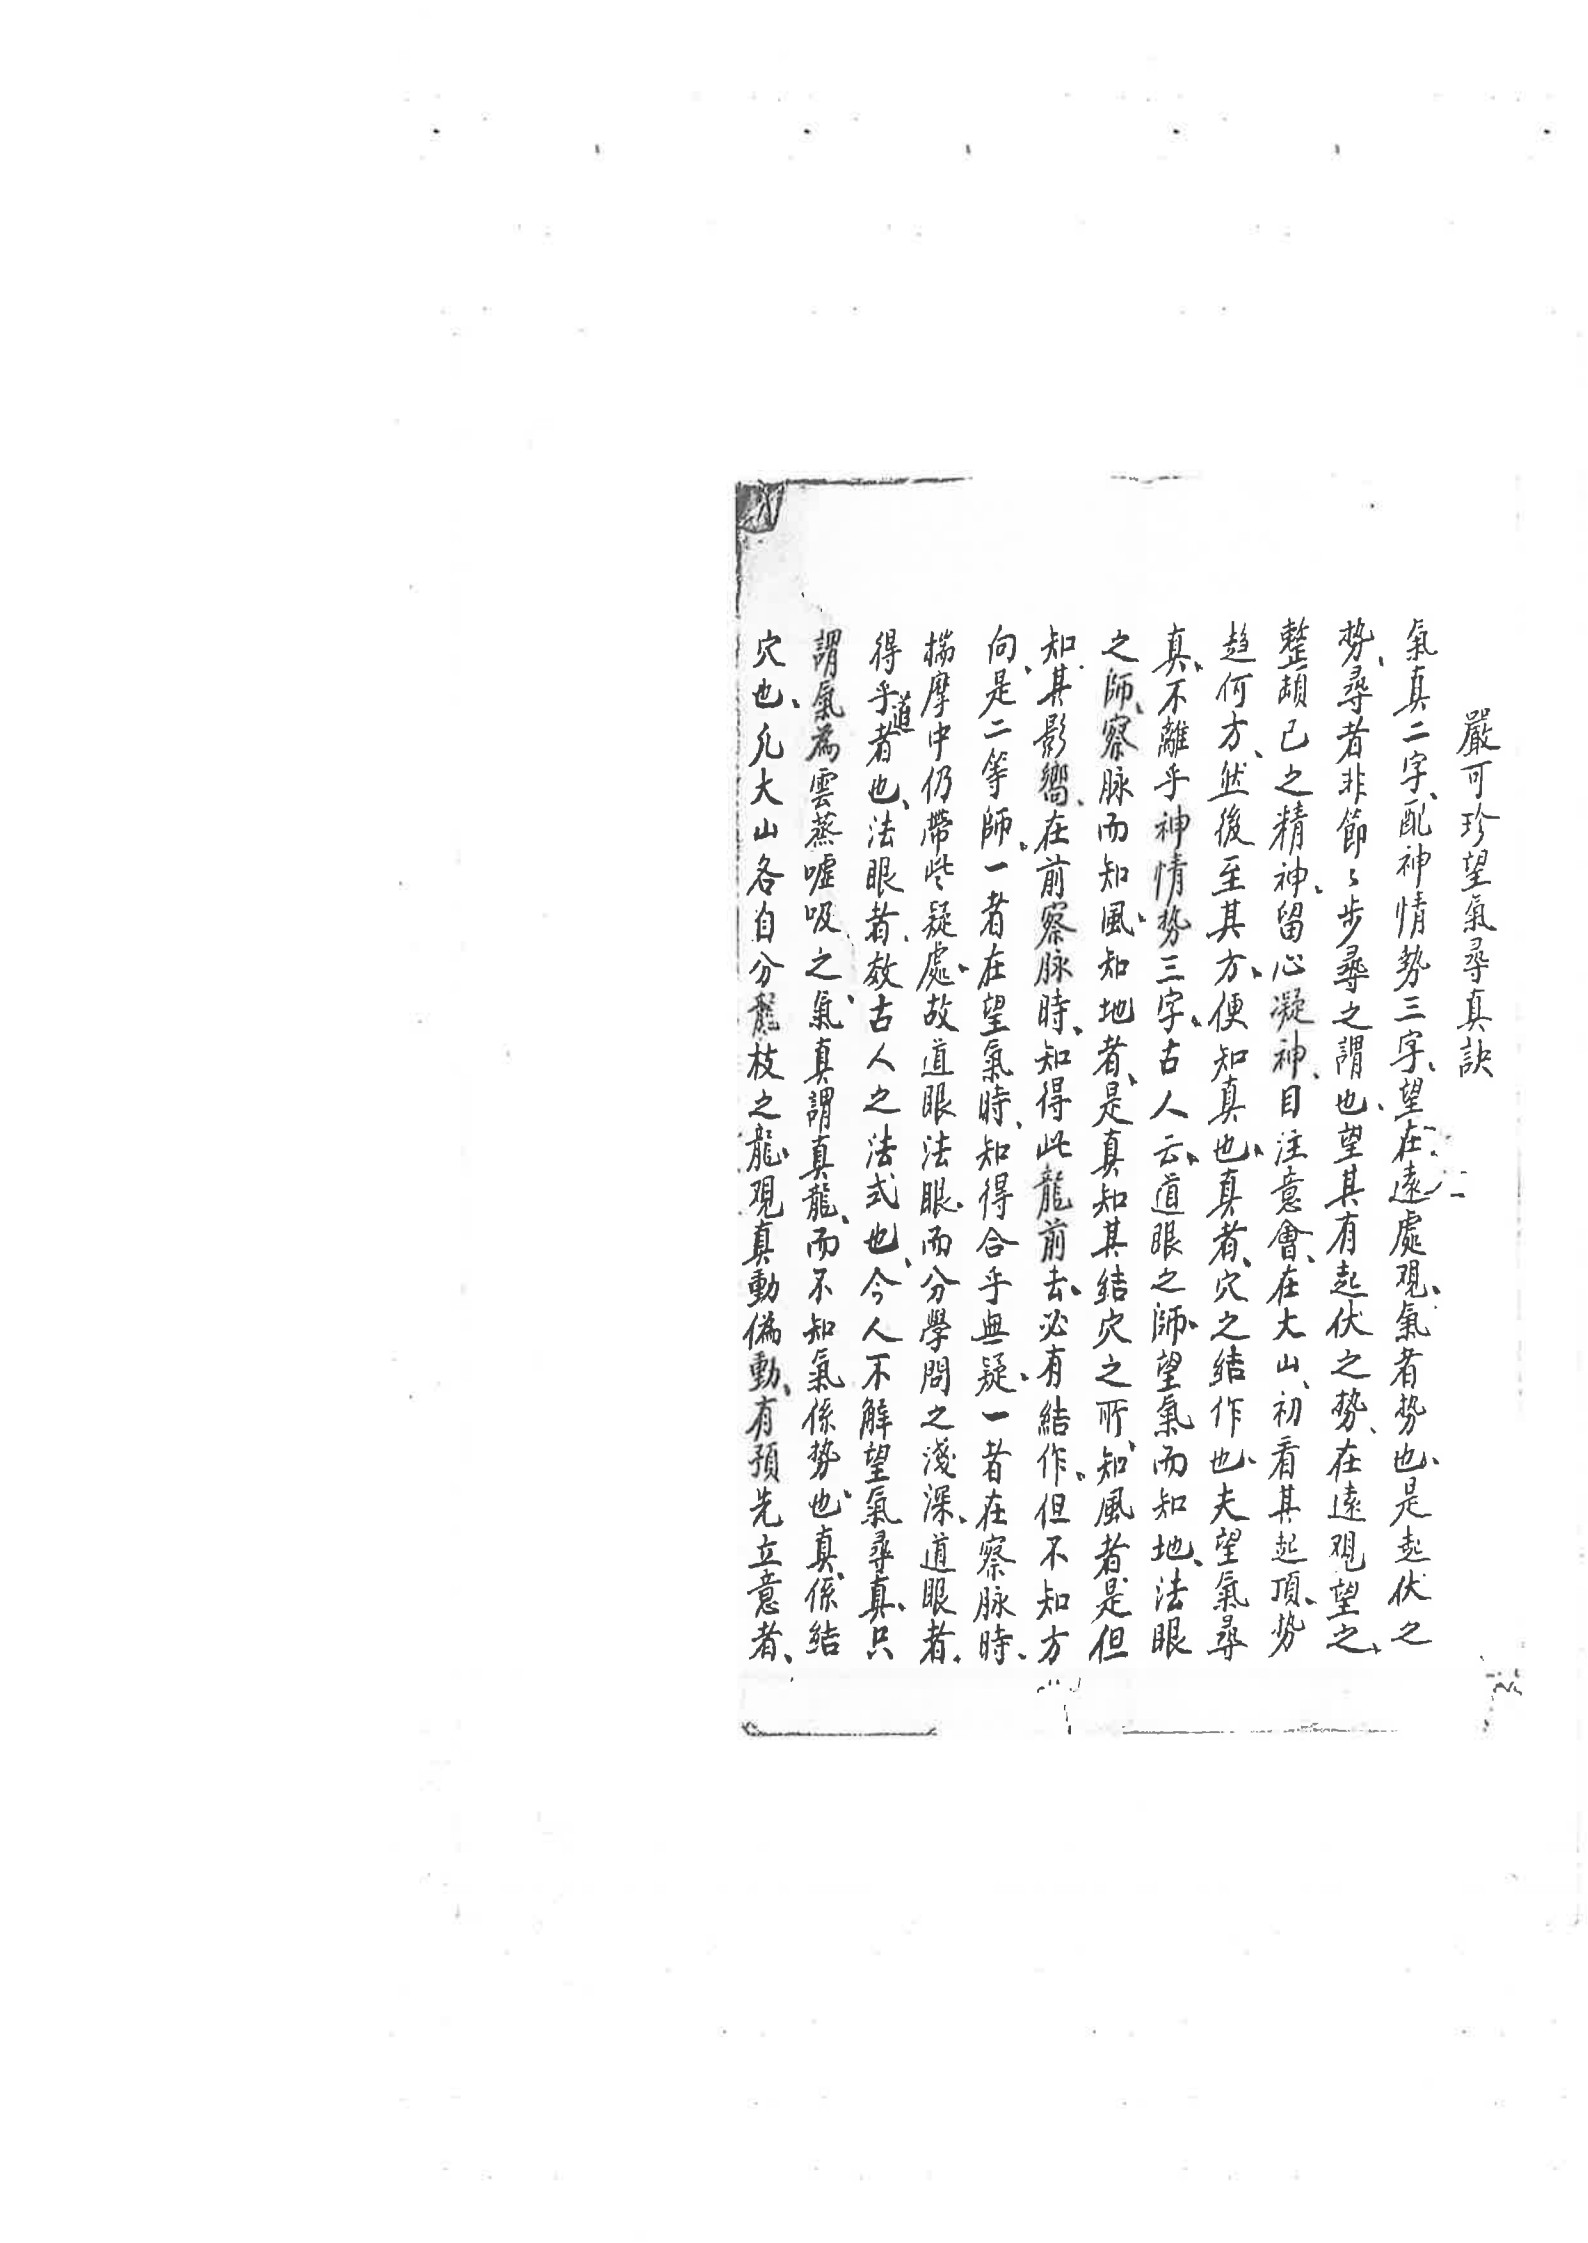 嚴可珍望氣尋真訣
氣真二字、配神情勢三字、望在遠處觀、氣者勢也、是起伏之
勢、尋者非節〻步尋之謂也、望其有起伏之勢、在遠觀望之、
整頓己之精神、留心凝神、目注意會、在大山、初看其起頂、勢
趋何方、然後至其方、便知真也、真者、穴之結作也、夫望氣尋
真、不離乎神情勢三字、古人云、道眼之師、望氣而知地、法眼
之師、察脉而知風、知地者、是真知其結穴之所、知風者是但
知其影嚮、在前察脉時、知得此龍前去、必有結作、但不知方
向、是二等師、一者在望氣時、知得合乎無疑、一者在察脉時、
揣摩中仍帶些疑處、故道眼法眼、而分學問之淺深、道眼者、
得乎道者也、法眼者、效古人之法式也、今人不解望氣尋真、只
謂氣為雲蒸噓吸之氣、真謂真龍、而不知氣係勢也、真係結
穴也、凡大山各自分龍枝之龍、观真動偽動、有預先立意者、